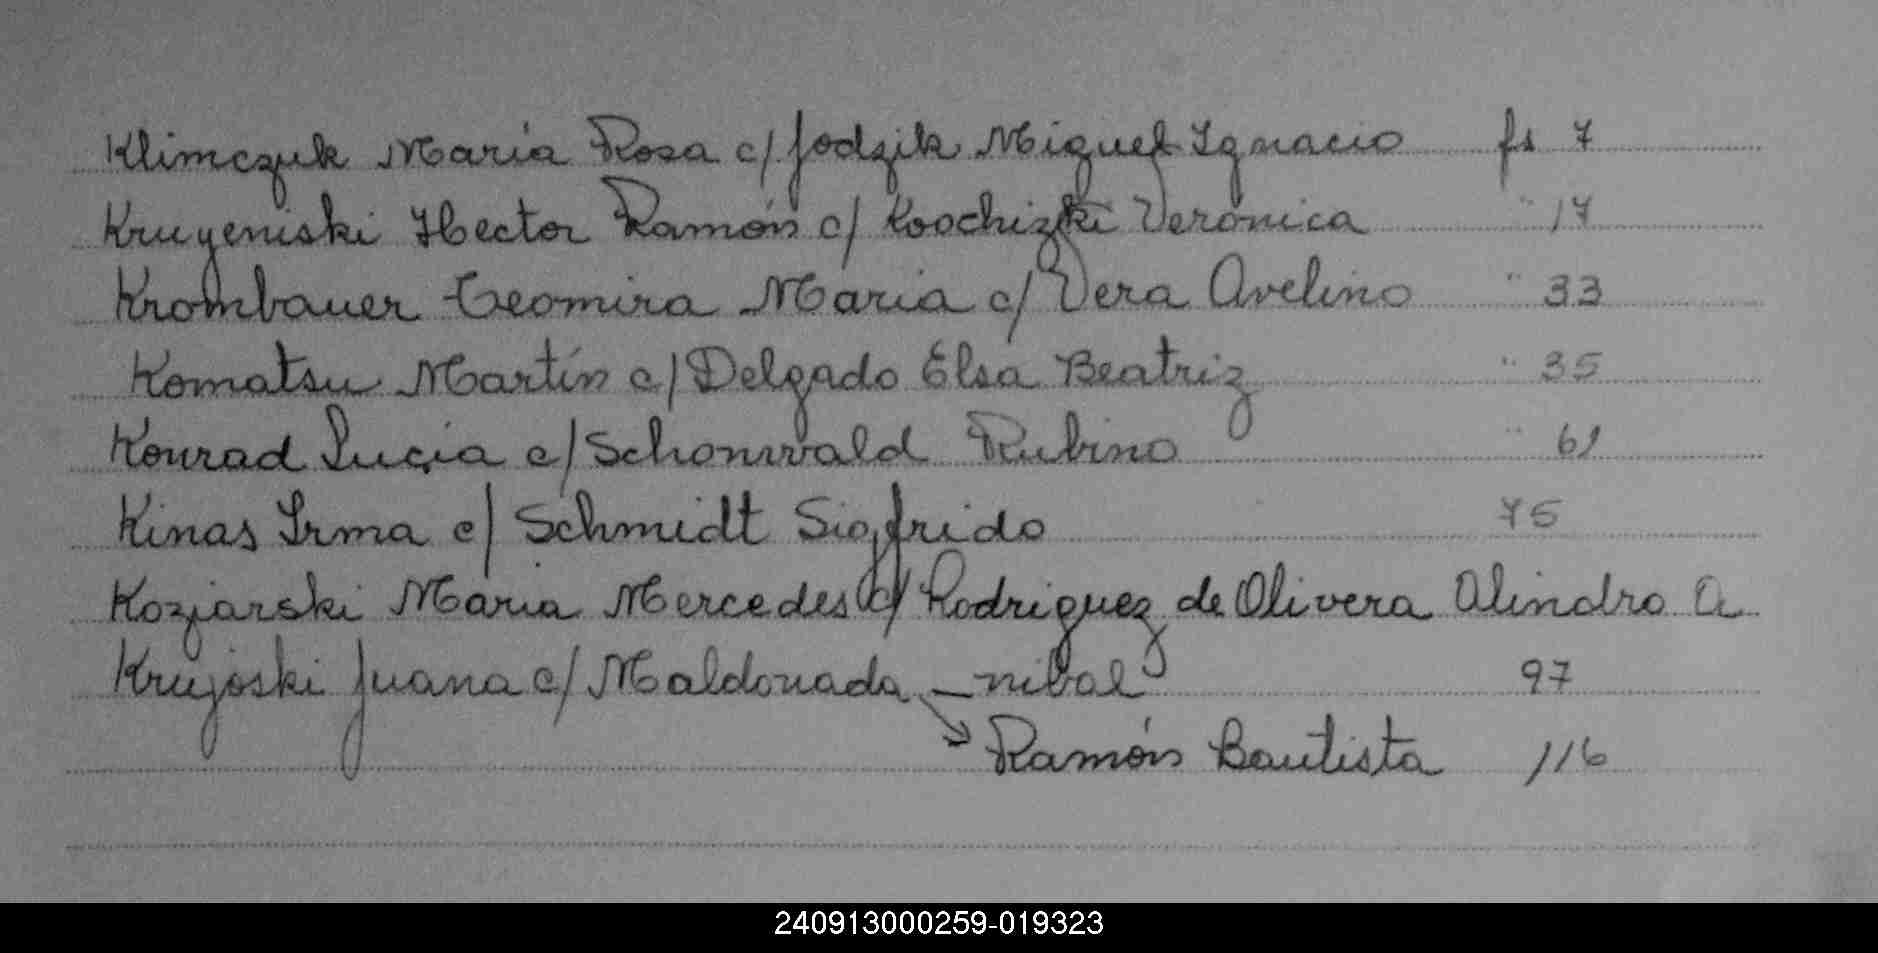 Klimczuk María Rosa c/ Jodzik Miguel Ignacio fs 7
Kruyeniski Hector Ramón c/ Koochizki Veronica " 17
Krombauer Teomira Maria c/ Vera Avelino " 33
Komatsu Martín c/ Delgado Elsa Beatriz " 35
Konrad Lucia c/ Schonwald Rubino " 61
Kinas Irma c/ Schmidt Sigfrido 75
Koziarski Maria Mercedes c/ Rodriguez de Olivera Alindro A
Krujoski Juana c/ Maldonada _nibal 97
Ramón Bautista 116
240913000259-019323